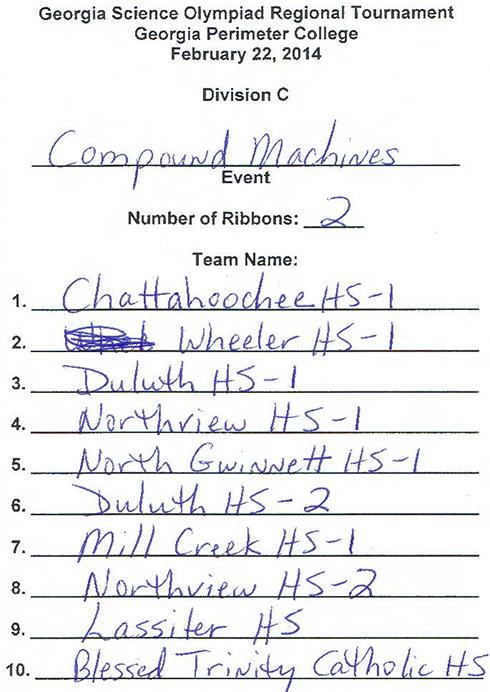 Georgia Science Olympiad Regional Tournament
Georgia Perimeter College
February 22, 2014
Division C
Compound Machines
Event
Number of Ribbons: 2
Team Name:
1. Chattahoochee HS-1
2. Wheeler HS-1
3. Duluth HS-1
4. Northview HS-1
5. North Gwinnett HS-1
6. Duluth HS-2
7. Mill Creek HS-1
8. Northview HS-2
9. Lassiter HS
10. Blessed Trinity Catholic HS